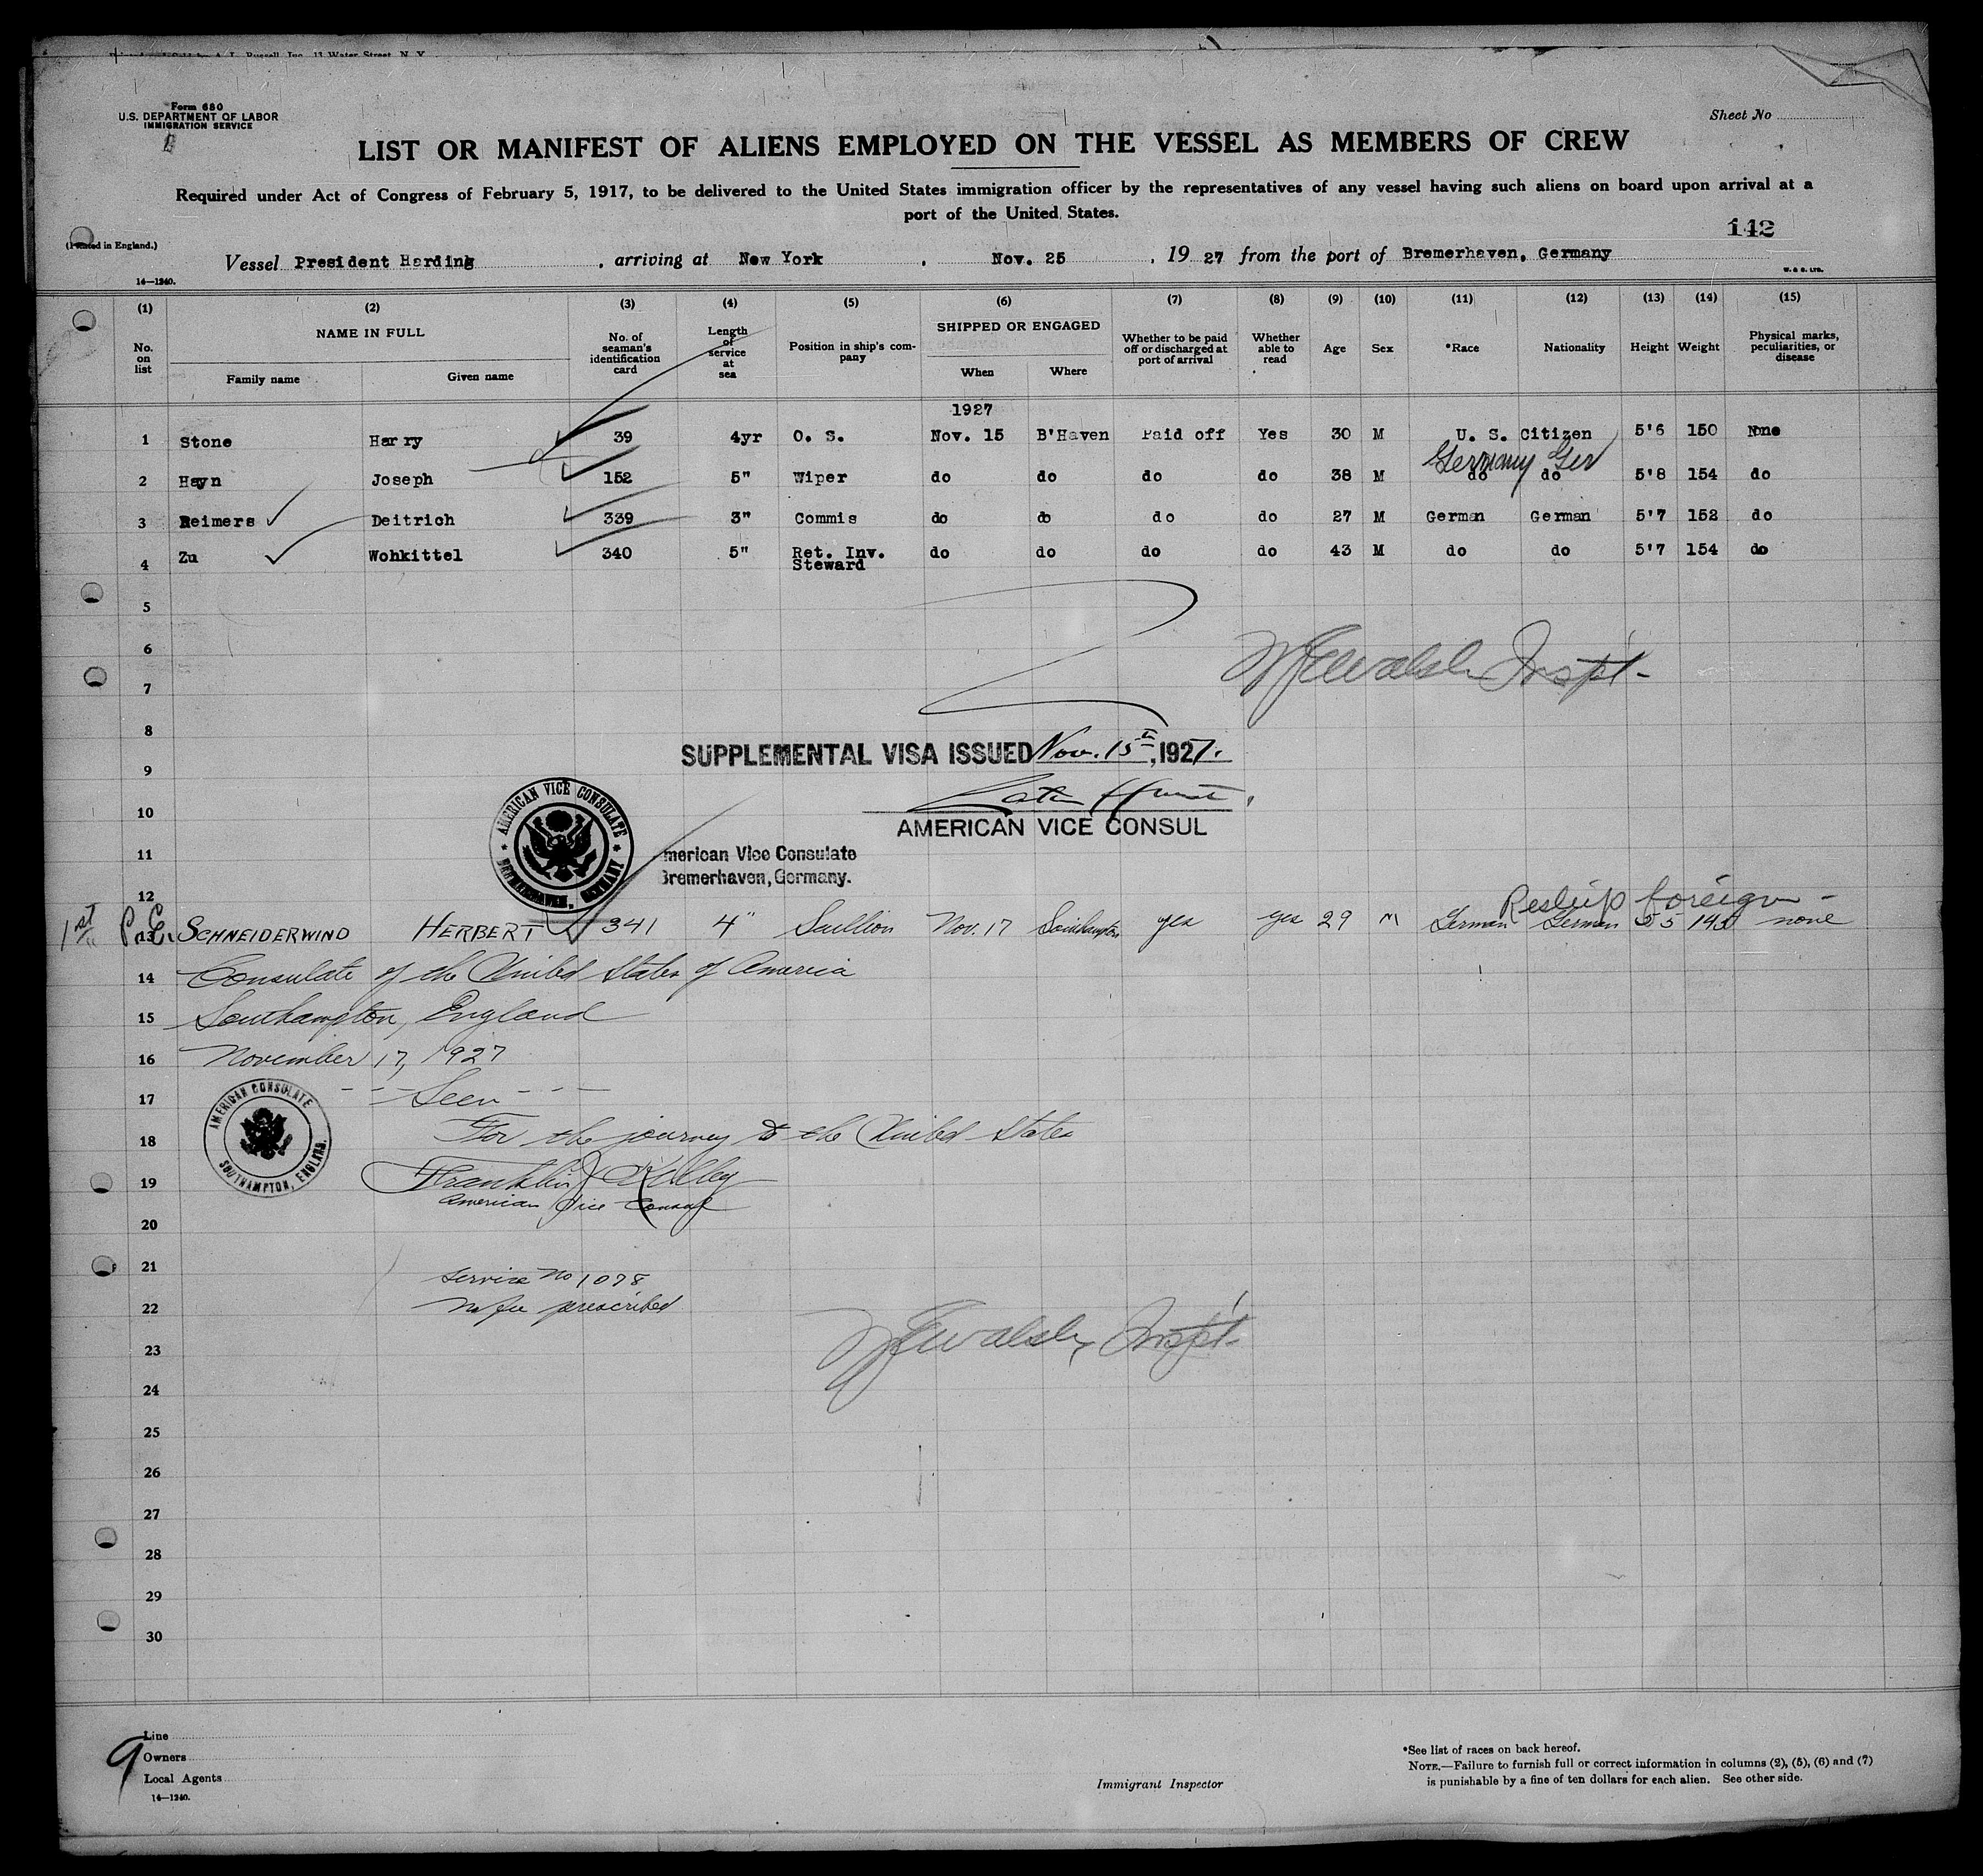 Form 680
U.S. DEPARTMENT OF LABOR
IMMIGRATION SERVICE
Sheet No
LIST OR MANIFEST OF ALIENS EMPLOYED ON THE VESSEL AS MEMBERS OF CREW
Required under Act of Congress of February 5, 1917, to be delivered to the United States immigration officer by the representatives of any vessel having such aliens on board upon arrival at a
port of the United States.
142
(Printed in England.)
Vessel President Harding , arriving at New York , Nov. 25 , 19 27 from the port of Bremerhaven, Germany
14—1240.
W. & S. LTD.
(1) (2) (3) (4) (5) (6) (7) (8) (9) (10) (11) (12) (13) (14) (15)
No. on list NAME IN FULL Family name Given name No. of seaman's identification card Length of service at sea Position in ship's com- pany SHIPPED OR ENGAGED When Where Whether to be paid off or discharged at port of arrival Whether able to read Age Sex *Race Nationality Height Weight Physical marks, peculiarities, or disease
1927
1 Stone Harry 39 4yr O. S. Nov. 15 B'Haven Paid off Yes 30 M U. S. Citizen 5'6 150 None
Germany Ger
2 Hayn Joseph 152 5" Wiper do do do do 38 M do do 5'8 154 do
3 Reimers Deitrich 339 3" Commis do do do do 27 M German German 5'7 152 do
4 Zu Wohkittel 340 5" Ret. Inv. Steward do do do do 43 M do do 5'7 154 do
5
6
Walsh Inspt-
7
8
SUPPLEMENTAL VISA ISSUED Nov. 15th, 1927.
9
10
AMERICAN VICE CONSUL
AMERICAN VICE CONSULATE
BREMERHAVEN, GERMANY
11
merican Vice Consulate
Bremerhaven, Germany.
12
Reship foreign -
1st P. C. 13 SCHNEIDERWIND HERBERT 341 4" Scullion Nov. 17 Southampton yes yes 29 M German German 5 5 145 none
14 Consulate of the United States of America
15 Southampton, England
16 November 17, 1927
AMERICAN CONSULATE
SOUTHAMPTON, ENGLAND.
17 - - - Seen - - -
18 For the journey to the United States
19 Franklin Kelley
American Vice Consul
20
21
Service No 1078
22 No fee prescribed
23 Walsh, Inspt-
24
25
26
27
28
29
30
9
Line
Owners
Local Agents
14—1240.
Immigrant Inspector
*See list of races on back hereof.
NOTE.—Failure to furnish full or correct information in columns (2), (5), (6) and (7)
is punishable by a fine of ten dollars for each alien. See other side.